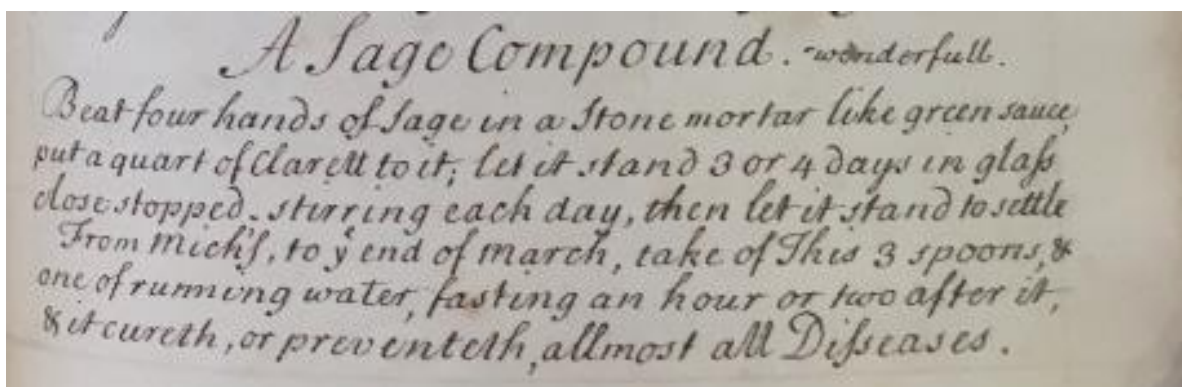 A Sage Compound. -wonderfull.
Beat four hands of Sage in a Stone mortar like green sauce,
put a quart of Clarett to it; let it stand 3 or 4 days in glaſs
close stopped. stirring each day, then let it stand to settle
From Mich's, to yͤ end of March, take of This 3 spoons, &
one of running water, fasting an hour or two after it,
& it cureth, or preventeth, allmost all Diſseases.